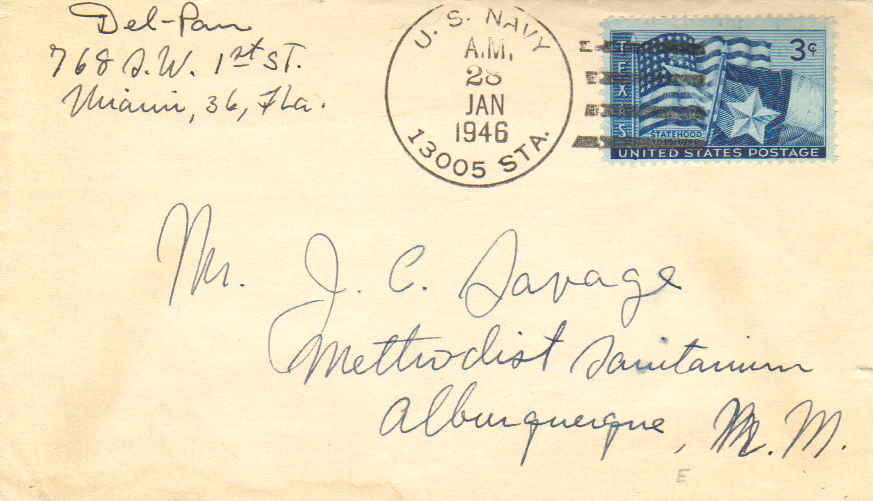 Del-Pan
768 S.W. 1st ST.
Miami, 36, Fla.
U. S. NAVY
A.M.
28
JAN
1946
13005 STA.
3¢
TEXAS
STATEHOOD
UNITED STATES POSTAGE
Mr. J. C. Savage
Methodist Sanitarium
Alburquerque, N. M.
E